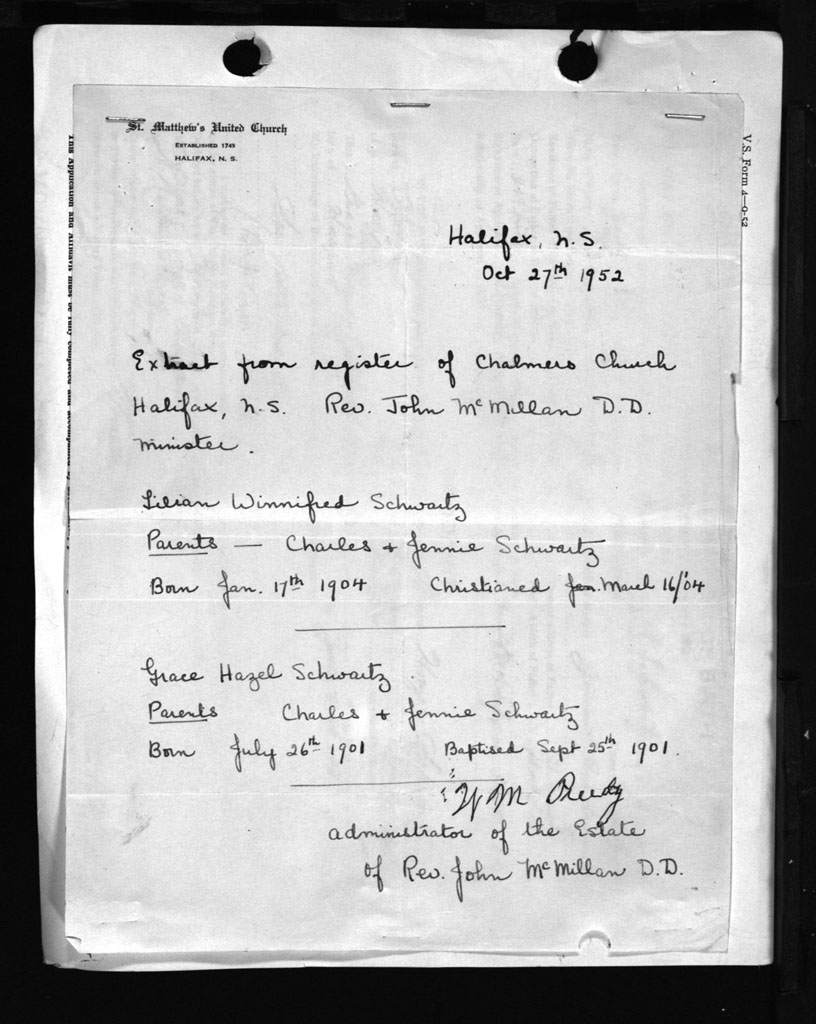 St. Matthew's United Church
ESTABLISHED 1749
HALIFAX, N. S.
V.S. Form 4—9-52
Halifax, N.S.
Oct 27th 1952
Extract from register of Chalmers Church
Halifax, N.S. Rev. John McMillan D.D.
Minister.
Lilian Winnifred Schwartz
Parents — Charles + Jennie Schwartz
Born Jan. 17th 1904 Christianed Jan. March 16/'04
Grace Hazel Schwartz
Parents Charles + Jennie Schwartz
Born July 26th 1901 Baptised Sept 25th 1901.
administrator of the Estate
of Rev. John McMillan D.D.